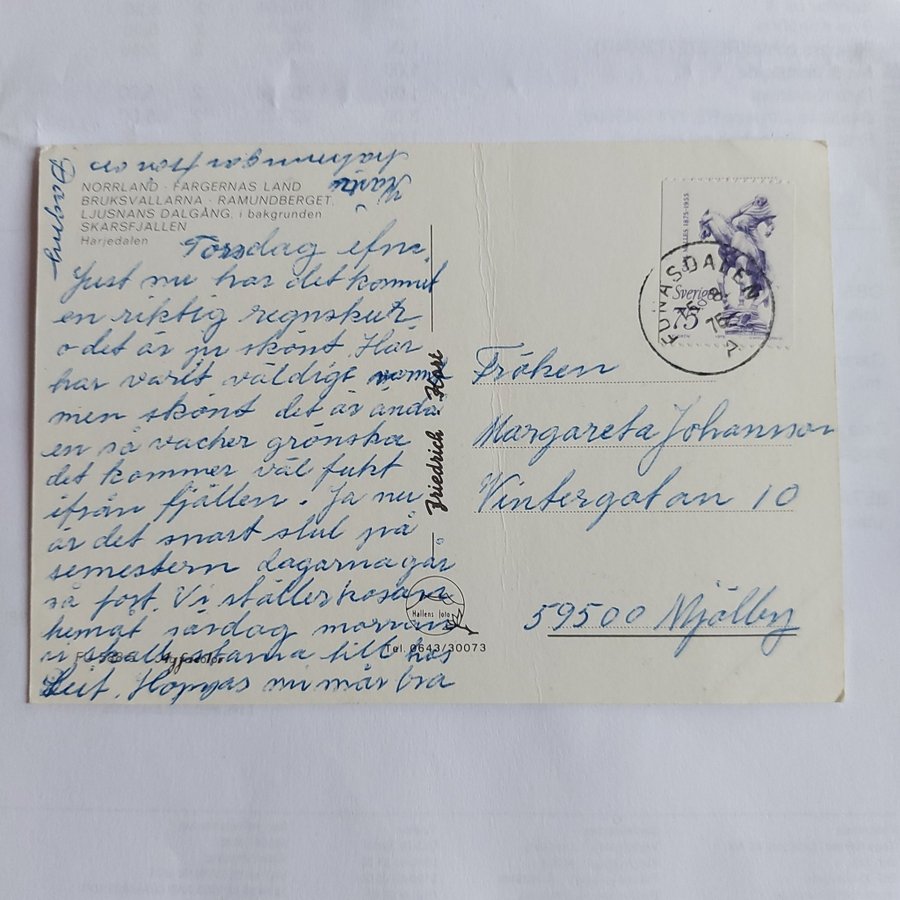 NORRLAND · FÄRGERNAS LAND
BRUKSVALLARNA · RAMUNDBERGET,
LJUSNANS DALGÅNG, i bakgrunden
SKARSFJÄLLEN
Härjedalen
Torsdag efm.
Just nu har det kommit
en riktig regnskur,
o det är ju skönt. Här
har varit väldigt varmt
men skönt det är ändå
en så vacker grönska
det kommer väl fukt
ifrån fjällen. Ja nu
är det snart slut på
semestern dagarna går
så fort. Vi ställer kosan
hemåt lördag morron
vi skall stanna till hos
Leif. Hoppas ni mår bra
hälsningar från oss
Dagny
Friedrich Karl
Hallens foto
Tel. 0643/30073
Sverige
75
1875-1955
FUNÄSDALEN
Fröken
Margareta Johansson
Vintergatan 10
59500 Mjölby